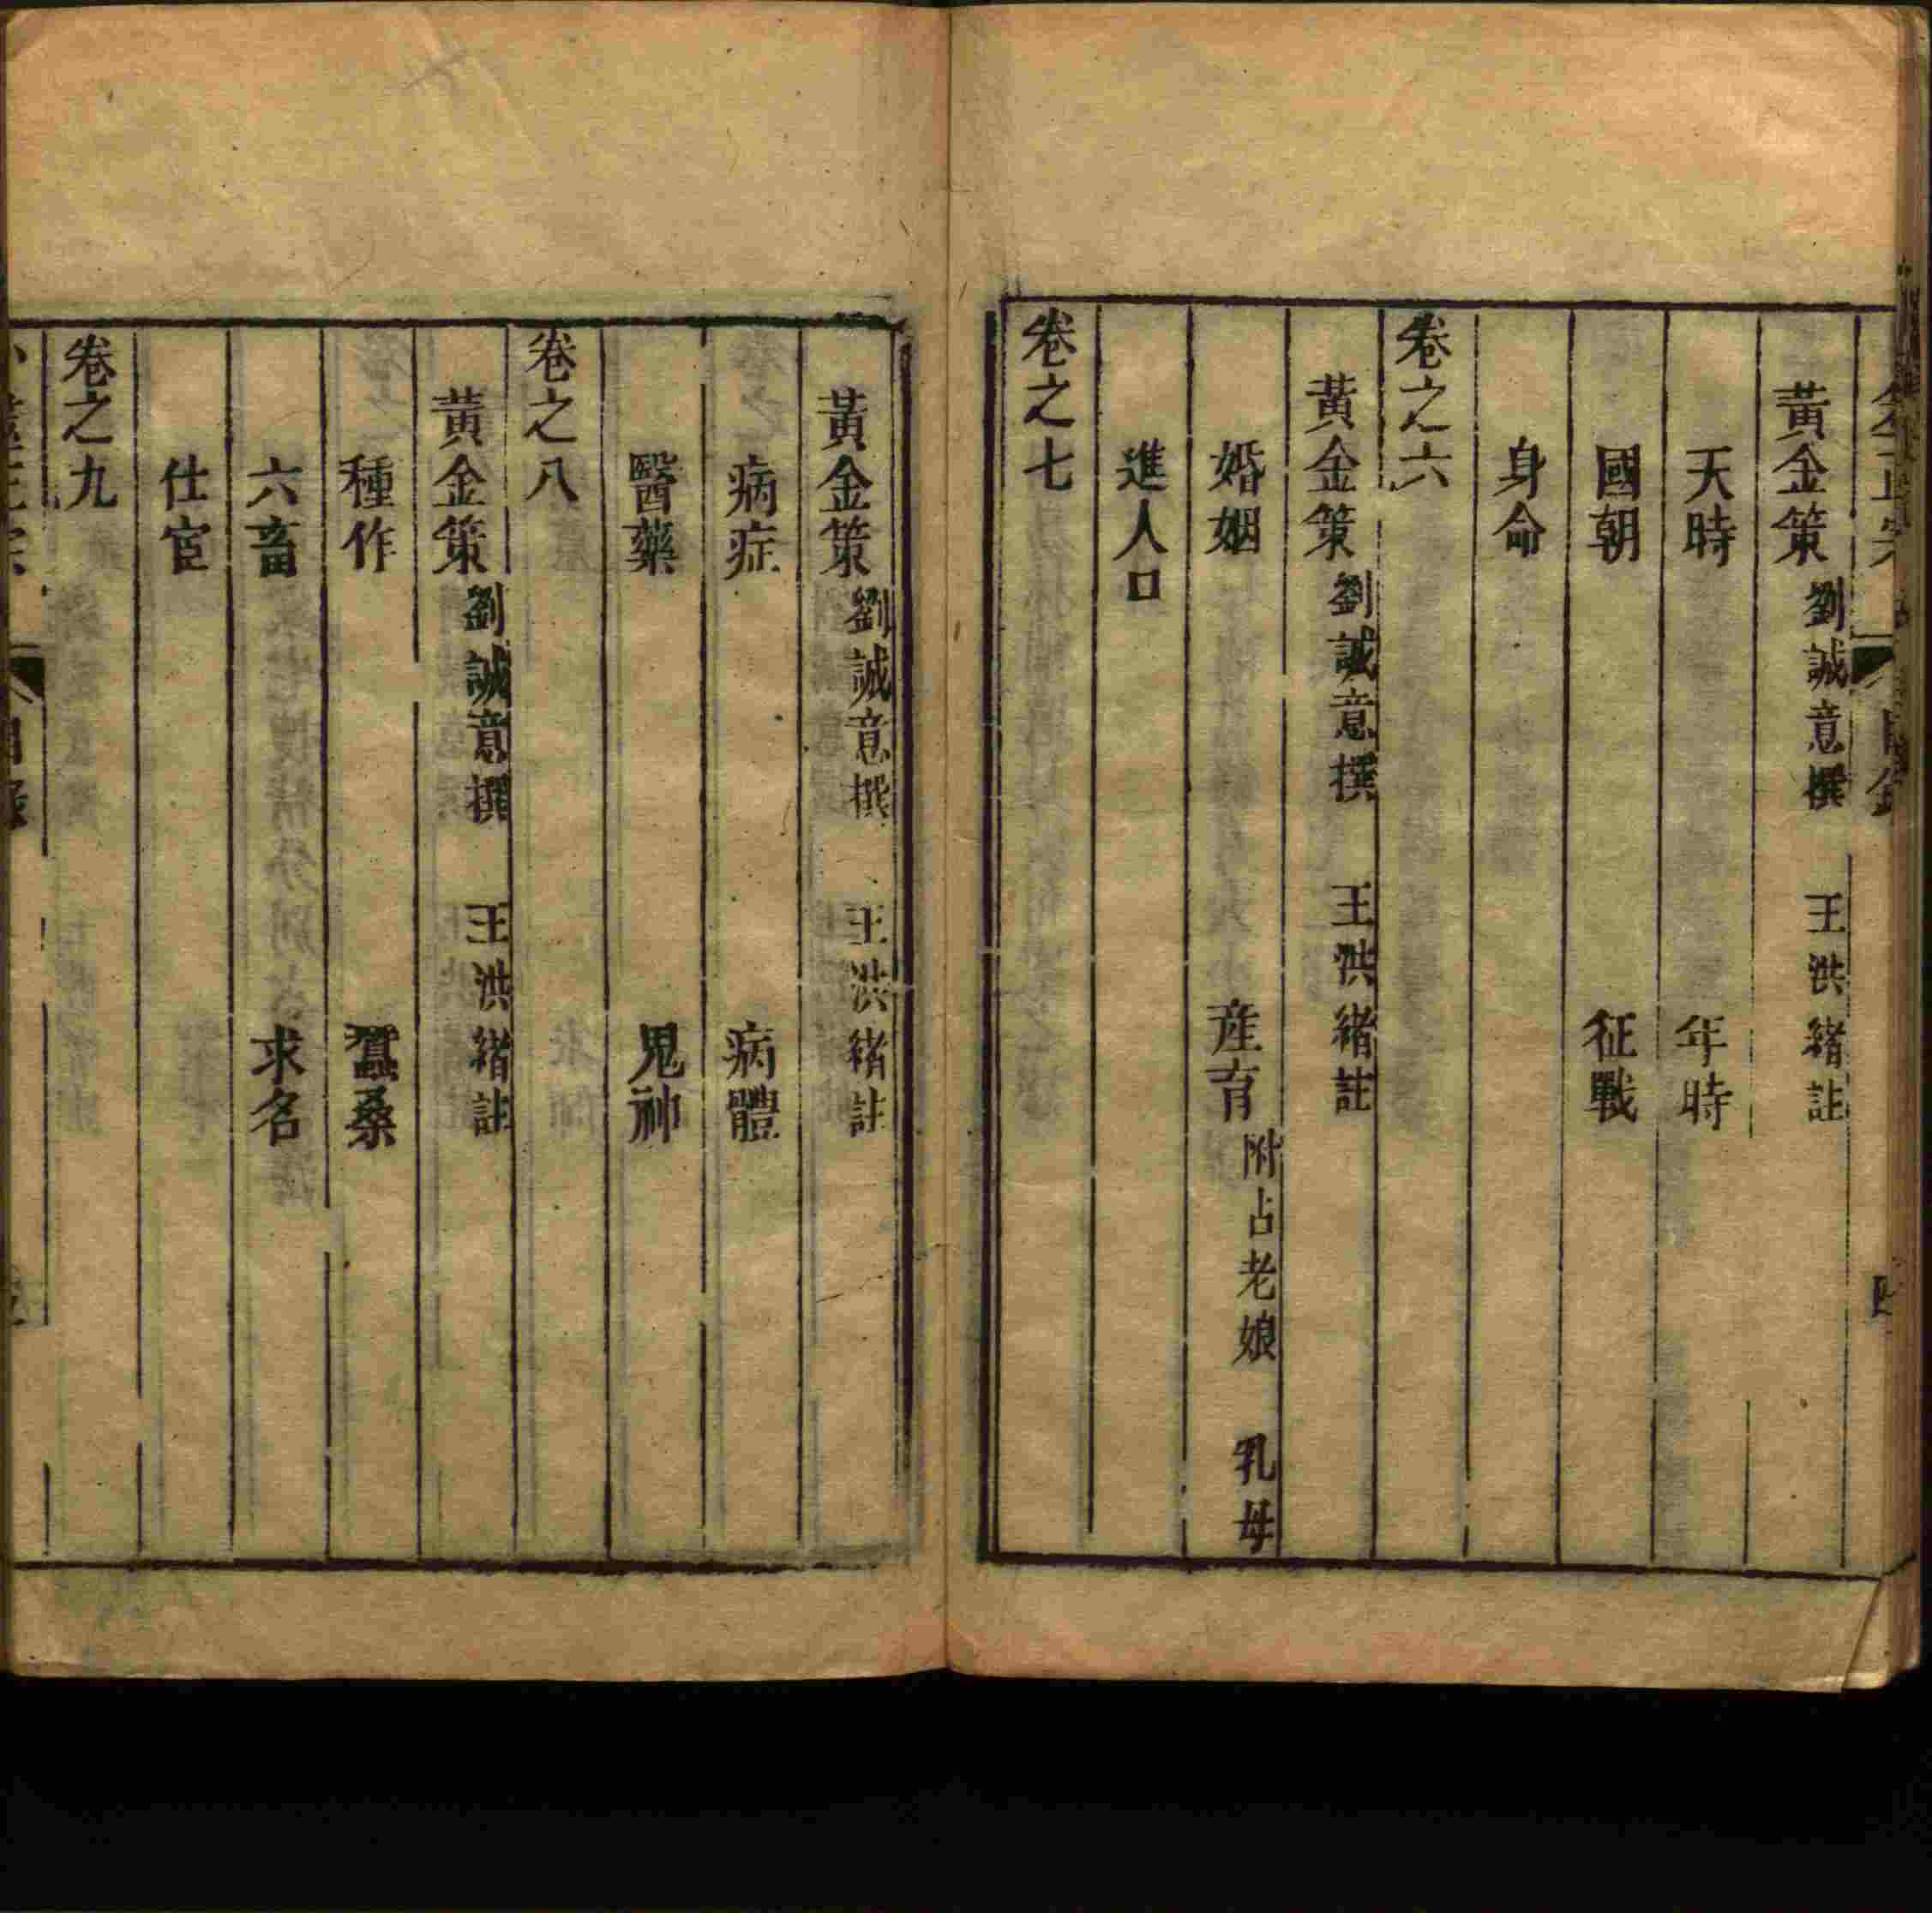 黃金策 劉誠意撰 王洪緒註
天時 年時
國朝 征戰
身命
卷之六
黃金策 劉誠意撰 王洪緒註
婚姻 產育 附占老娘 乳母
進人口
卷之七
黃金策 劉誠意撰 王洪緒註
病症 病體
醫藥 鬼神
卷之八
黃金策 劉誠意撰 王洪緒註
種作 蠶桑
六畜 求名
仕宦
卷之九